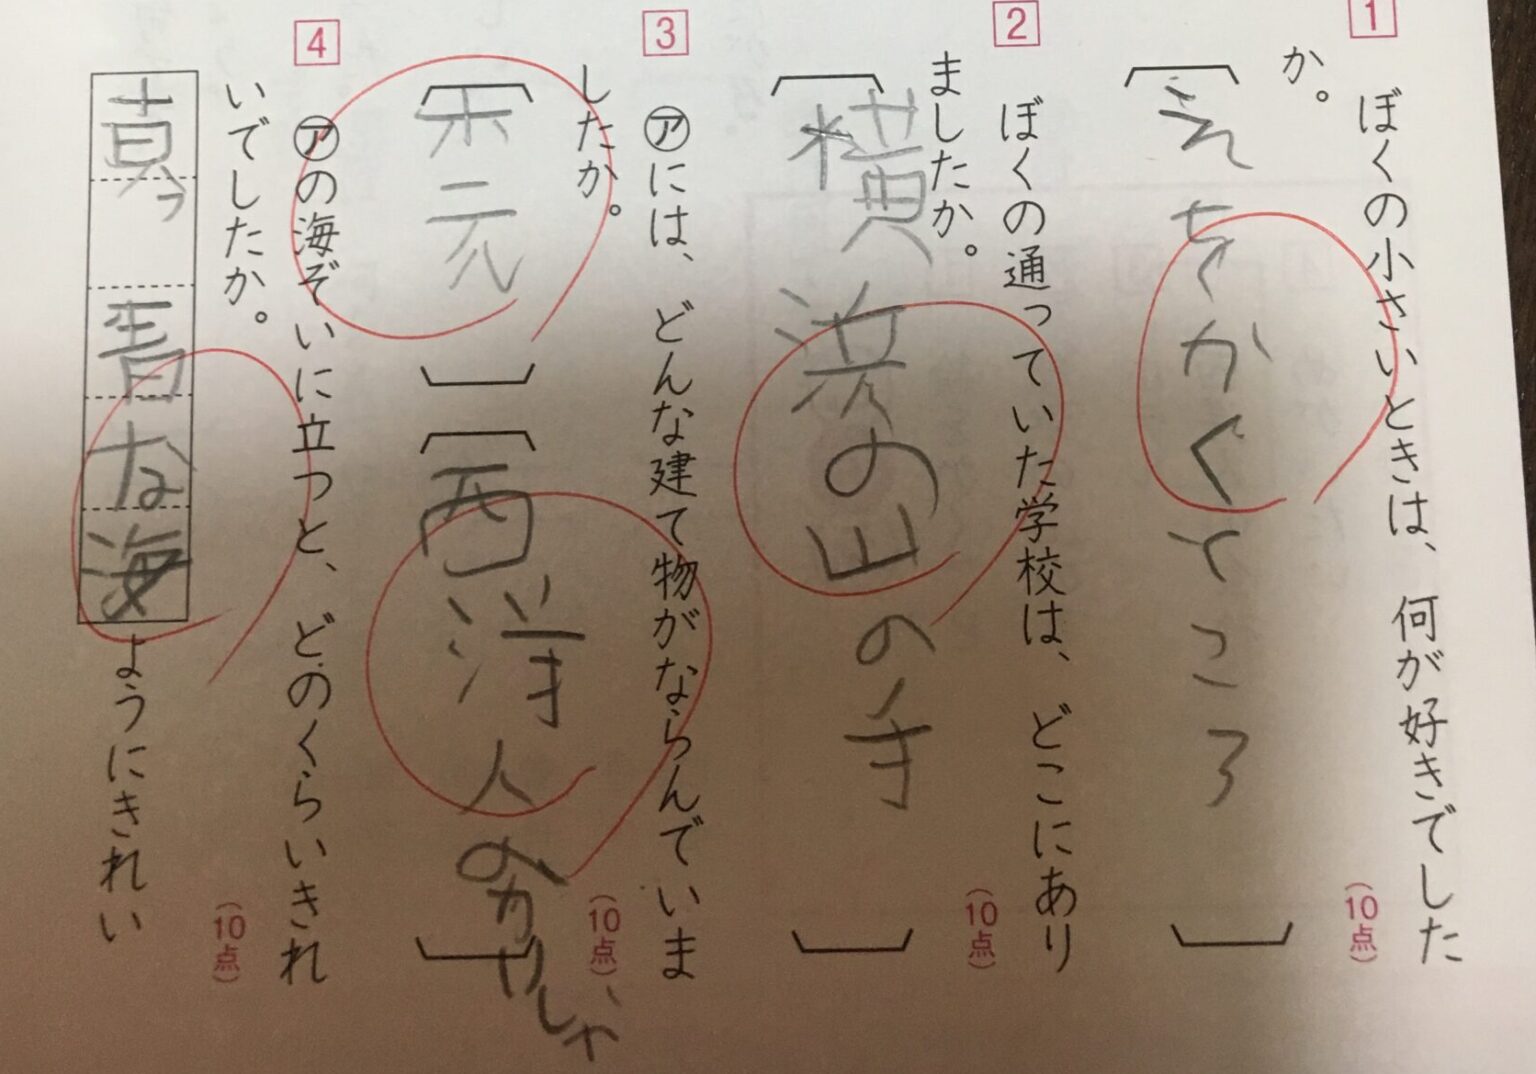 1
ぼくの小さいときは、何が好きでした
か。
(10点)
えをかくところ
2
ぼくの通っていた学校は、どこにあり
ましたか。
(10点)
横浜の山の手
3
㋐には、どんな建て物がならんでいま
したか。
(10点)
ホテル
西洋人のかいしゃ
4
㋐の海ぞいに立つと、どのくらいきれ
いでしたか。
(10点)
真っ青な海
ようにきれい